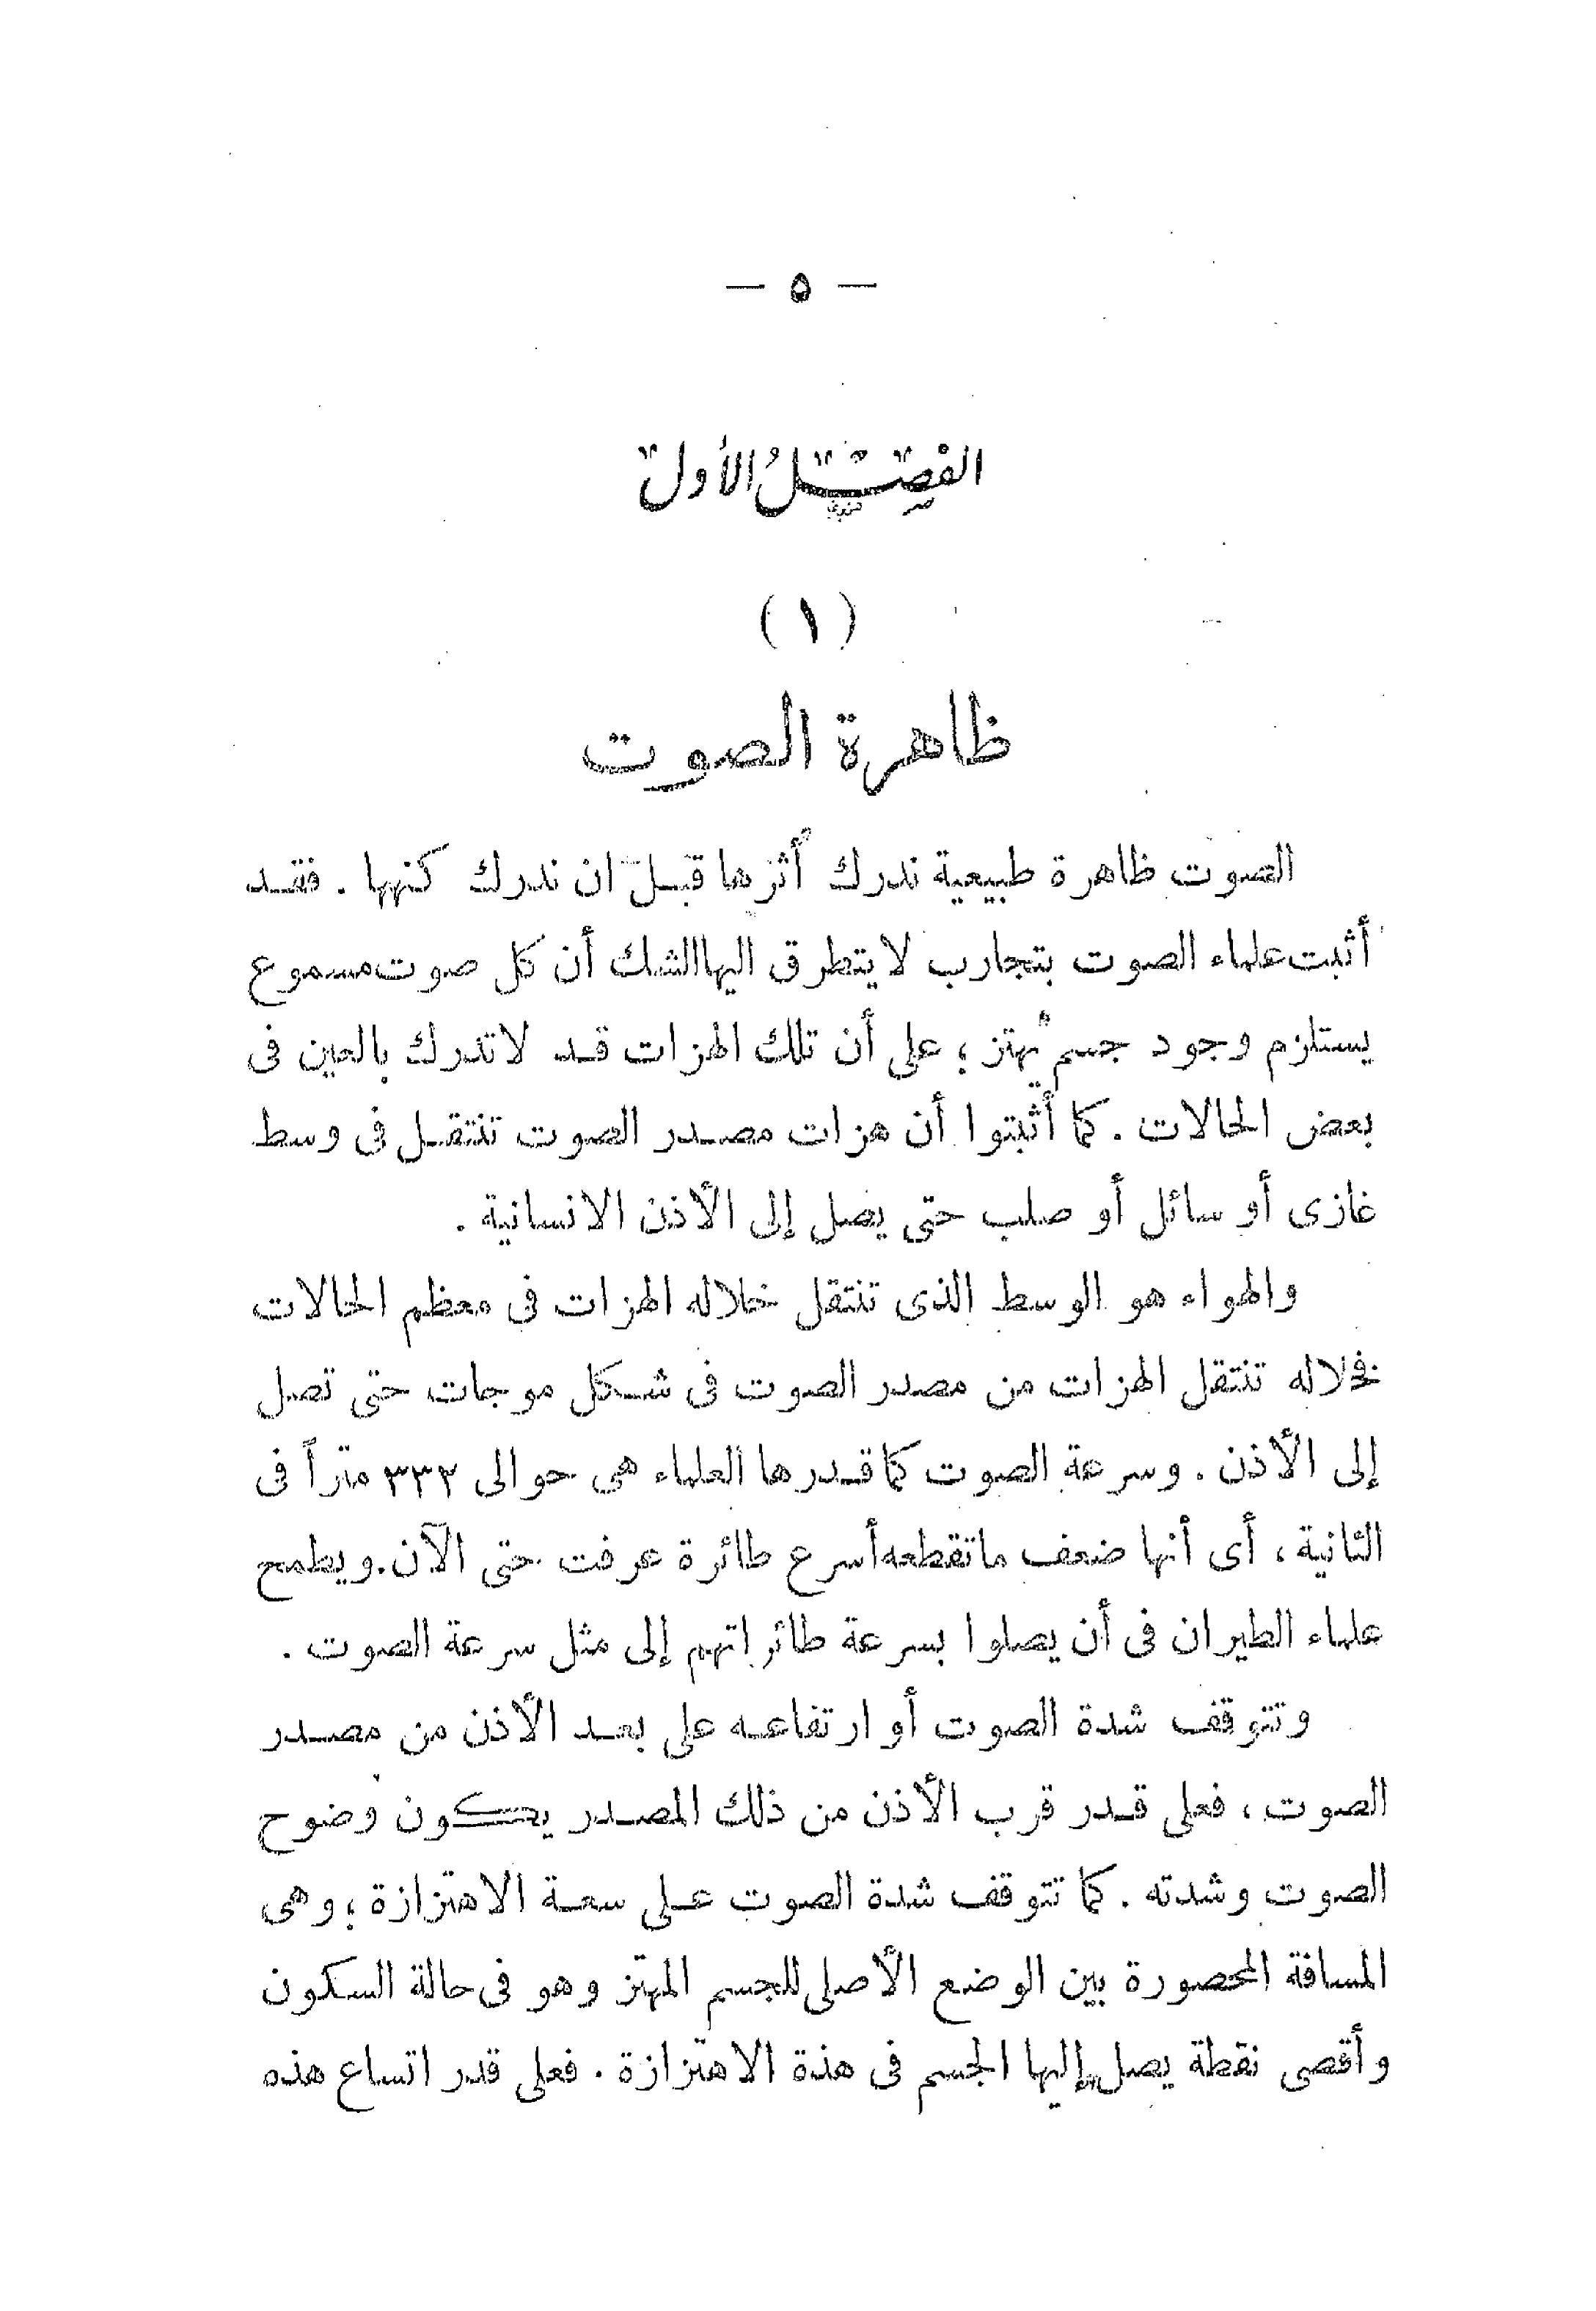 — ٥ —
الفصل الأول
( ١ )
ظاهرة الصوت
الصوت ظاهرة طبيعية ندرك أثرها قبل ان ندرك كنهها . فقد
أثبت علماء الصوت بتجارب لا يتطرق اليها الشك أن كل صوت مسموع
يستلزم وجود جسم يُهتز ؛ على أن تلك الهزات قد لا تدرك بالعين فى
بعض الحالات . كما أثبتوا أن هزات مصدر الصوت تنتقل فى وسط
غازى أو سائل أو صلب حتى يصل إلى الأذن الانسانية .
والهواء هو الوسط الذى تنتقل خلاله الهزات فى معظم الحالات
فخلاله تنتقل الهزات من مصدر الصوت فى شكل موجات حتى تصل
إلى الأذن . وسرعة الصوت كما قدرها العلماء هى حوالى ٣٣٢ متراً فى
الثانية ، أى أنها ضعف ما تقطعه أسرع طائرة عرفت حتى الآن . ويطمح
علماء الطيران فى أن يصلوا بسرعة طائراتهم إلى مثل سرعة الصوت .
وتتوقف شدة الصوت أو ارتفاعه على بعد الأذن من مصدر
الصوت ، فعلى قدر قرب الأذن من ذلك المصدر يكون وضوح
الصوت وشدته . كما تتوقف شدة الصوت على سعة الاهتزازة ؛ وهى
المسافة المحصورة بين الوضع الأصلى للجسم المهتز وهو فى حالة السكون
وأقصى نقطة يصل إليها الجسم فى هذة الاهتزازة . فعلى قدر اتساع هذه